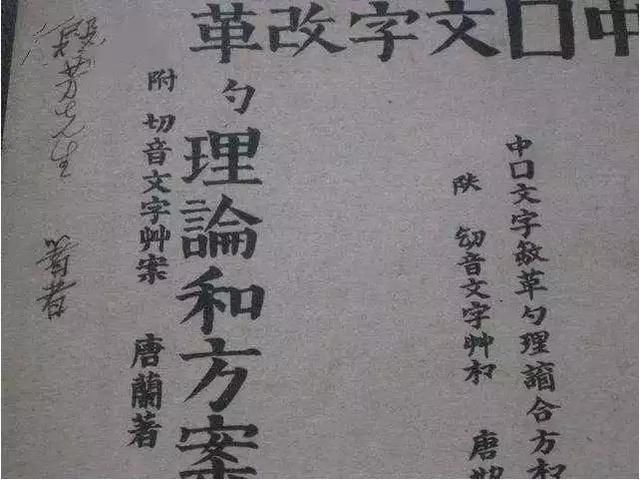 中囗文字改革
中口文字敏革勺理合方和
音文字艸和 唐
勺理論和方案
附 切音文字艸案 唐蘭著
芳先生 著者